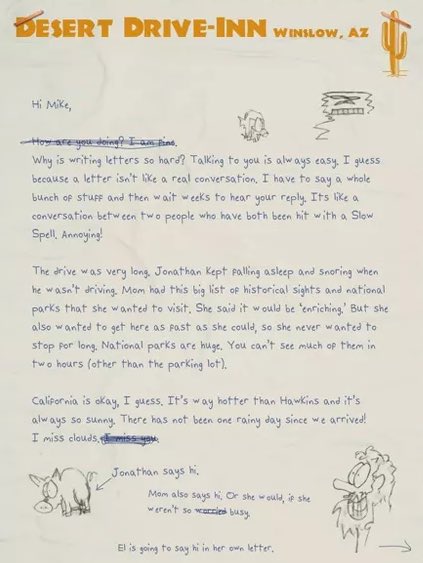 DESERT DRIVE-INN WINSLOW, AZ
Hi Mike,
How are you doing? I am fine.
Why is writing letters so hard? Talking to you is always easy. I guess
because a letter isn't like a real conversation. I have to say a whole
bunch of stuff and then wait weeks to hear your reply. Its like a
conversation between two people who have both been hit with a Slow
Spell. Annoying!
The drive was very long. Jonathan kept falling asleep and snoring when
he wasn't driving. Mom had this big list of historical sights and national
parks that she wanted to visit. She said it would be 'enriching.' But she
also wanted to get here as fast as she could, so she never wanted to
stop for long. National parks are huge. You can't see much of them in
two hours (other than the parking lot).
California is okay, I guess. It's way hotter than Hawkins and it's
always so sunny. There has not been one rainy day since we arrived!
I miss clouds. I miss you.
Jonathan says hi.
Mom also says hi. Or she would, if she
weren't so worried busy.
El is going to say hi in her own letter.